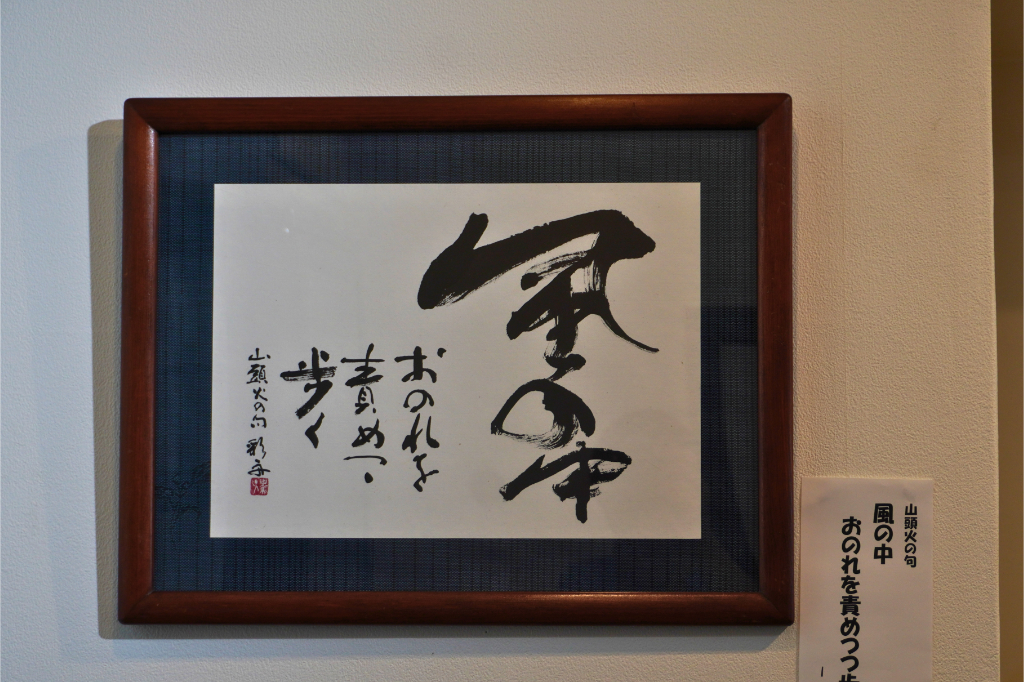 風の中
おのれを
責めつつ
歩く
山頭火の句
山頭火の句
風の中
おのれを責めつつ歩